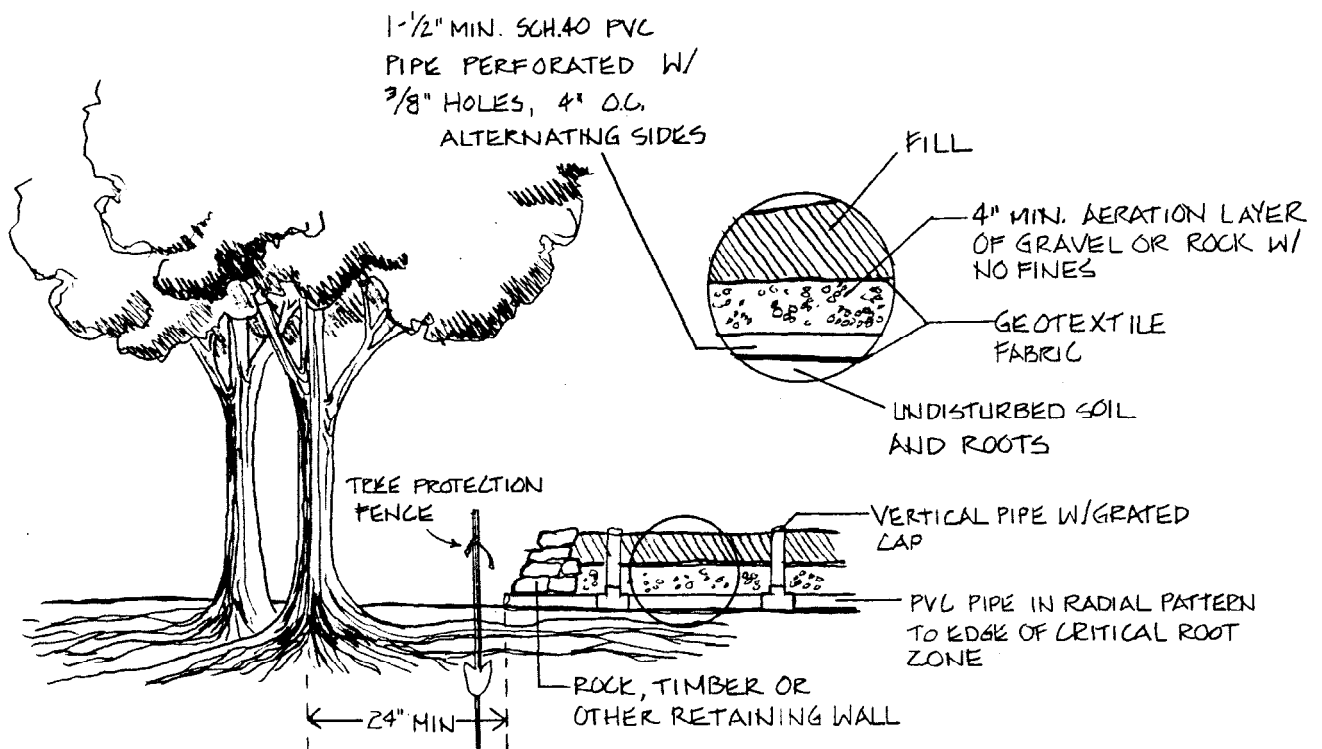 1-1/2" MIN. SCH.40 PVC
PIPE PERFORATED W/
3/8" HOLES, 4" O.C.
ALTERNATING SIDES
FILL
4" MIN. AERATION LAYER
OF GRAVEL OR ROCK W/
NO FINES
GEOTEXTILE
FABRIC
UNDISTURBED SOIL
AND ROOTS
TREE PROTECTION
FENCE
VERTICAL PIPE W/GRATED
CAP
PVC PIPE IN RADIAL PATTERN
TO EDGE OF CRITICAL ROOT
ZONE
ROCK, TIMBER OR
OTHER RETAINING WALL
24" MIN